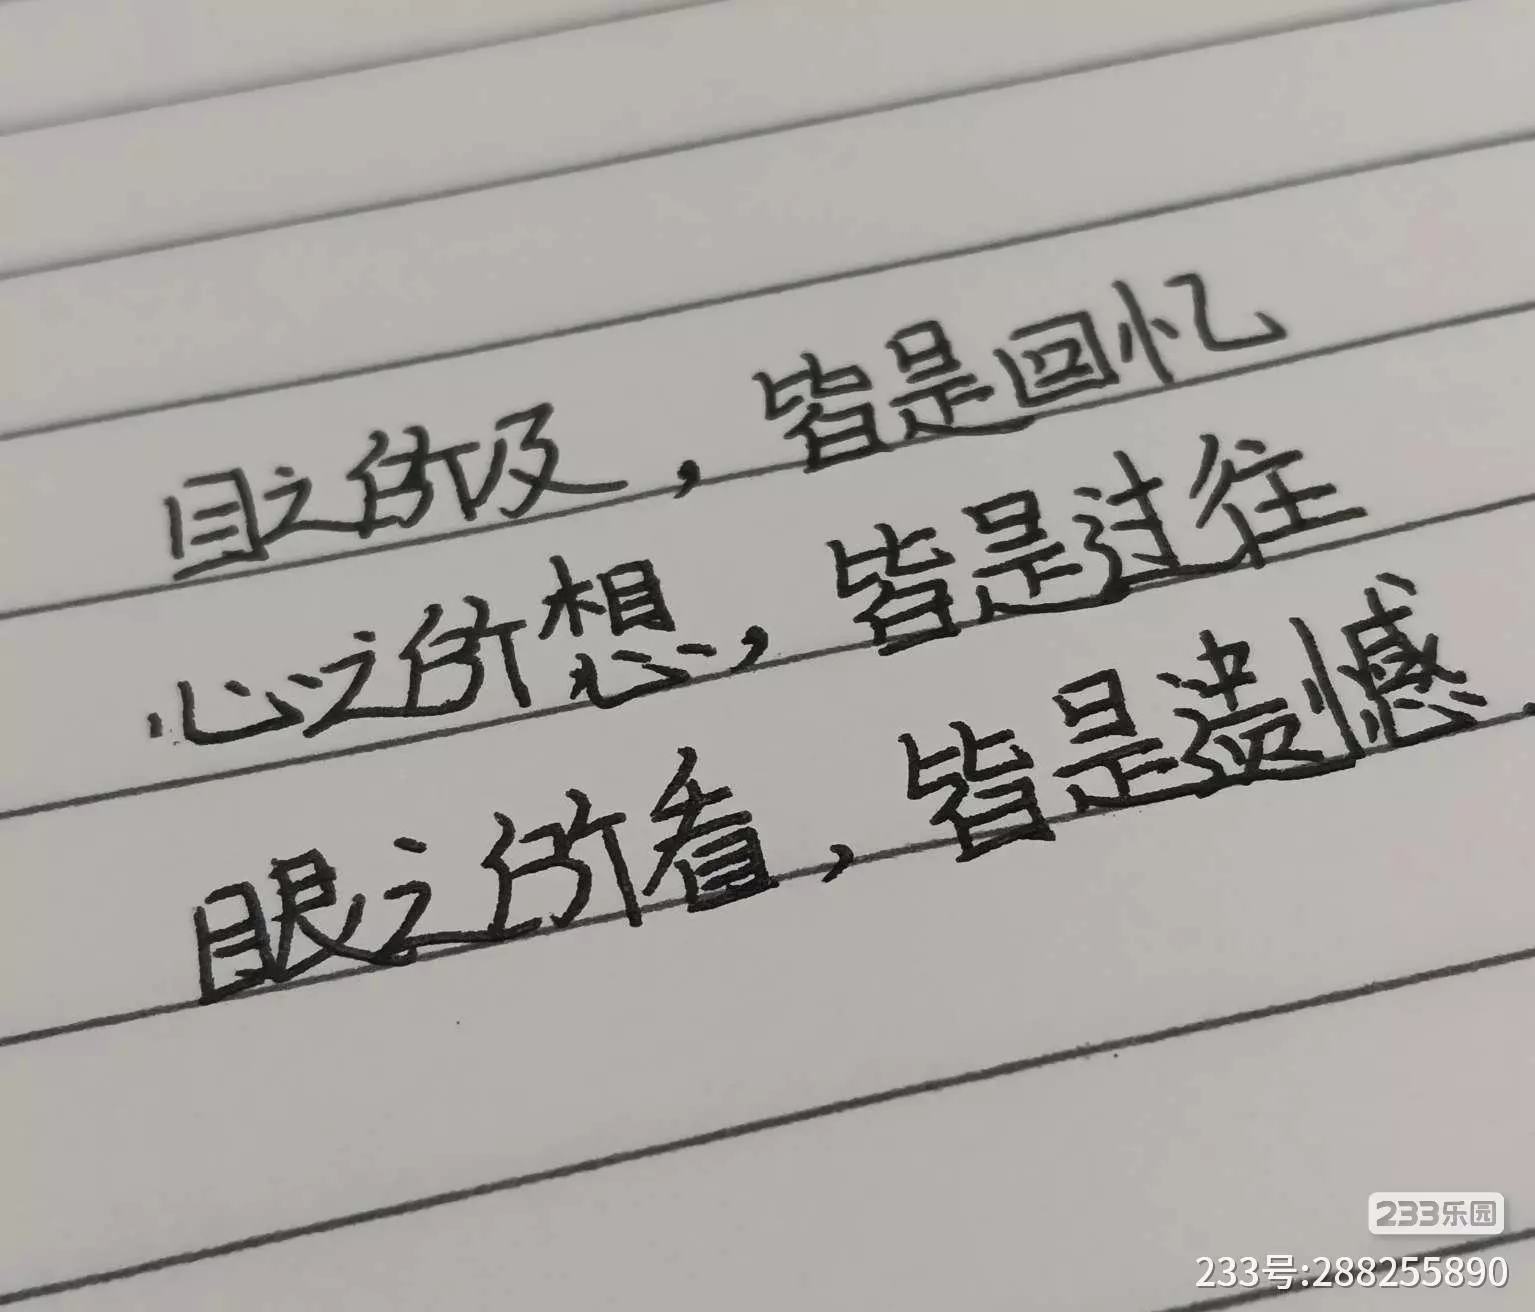 目之所及，皆是回忆
心之所想，皆是过往
眼之所看，皆是遗憾.
233乐园
233号:288255890